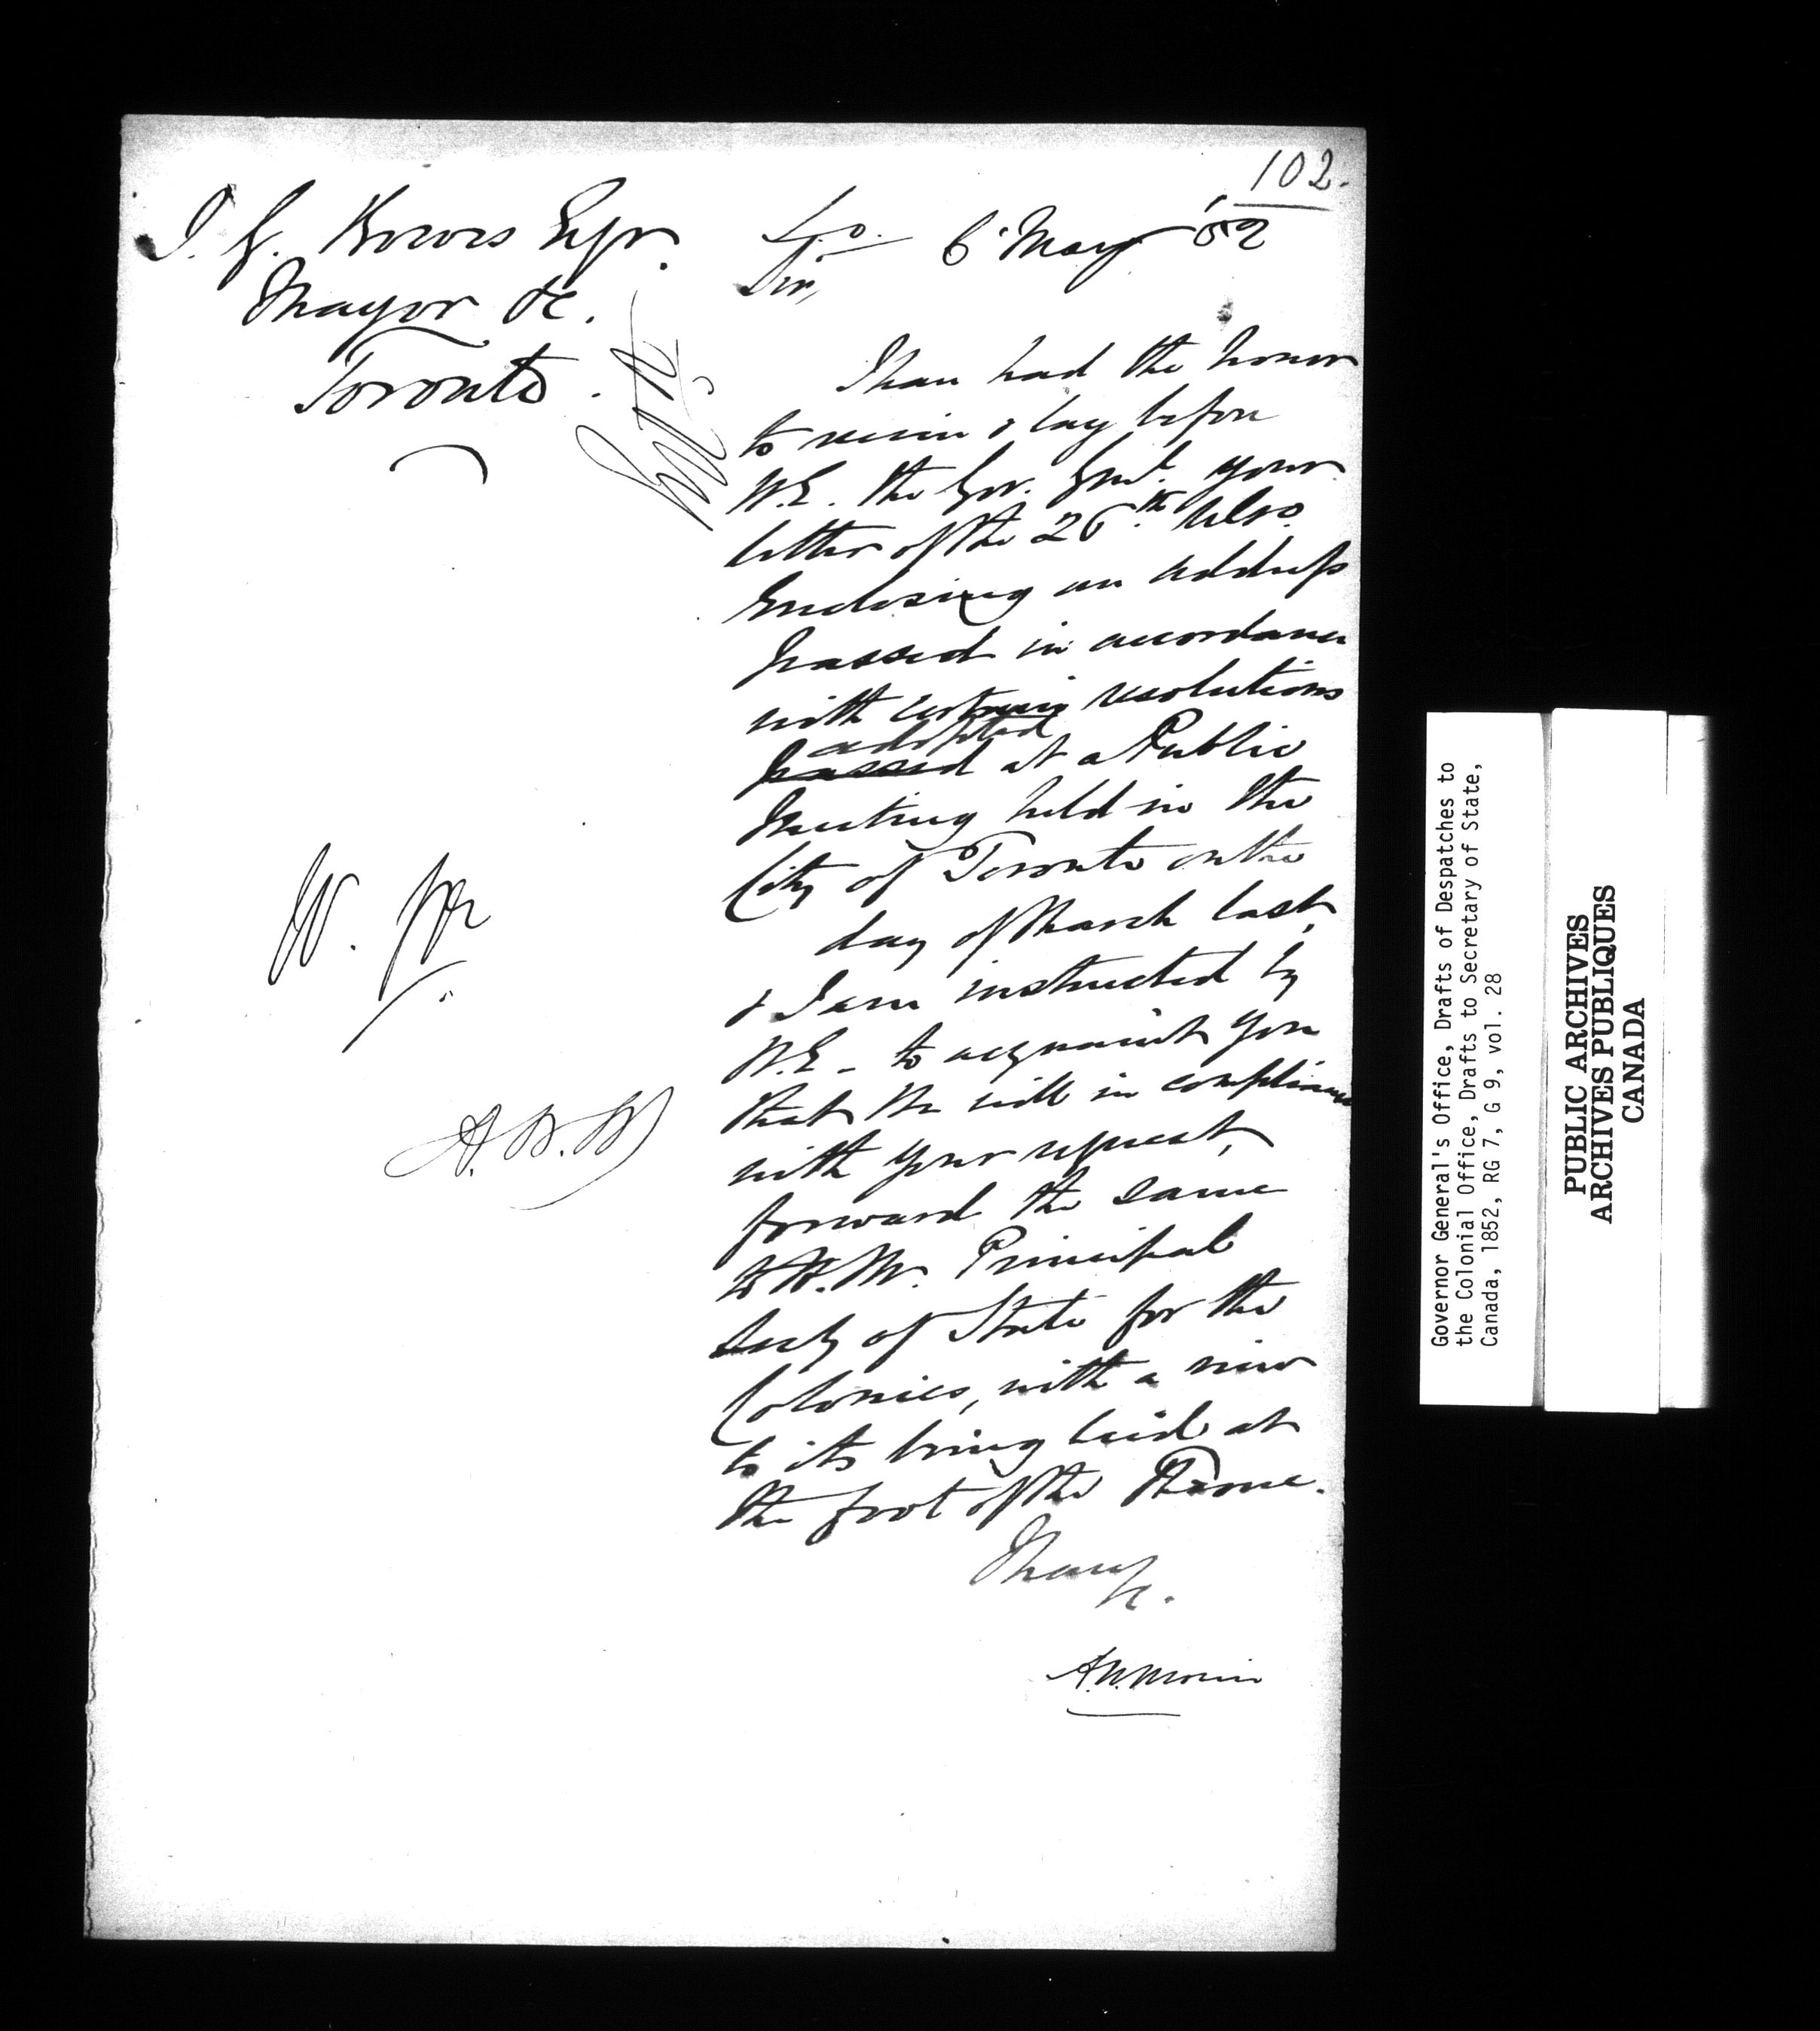 102.
J. G. Bowes Esqr.
Mayor &c.
Toronto.
S.O. 6 May '52
Sir,
I have had the honor
to receive & lay before
H.E. the Gov. Genl. your
letter of the 26th. Ulto.
Enclosing an address
passed in accordance
with certain resolutions
adopted
passed at a Public
Meeting held in the
City of Toronto on the
day of March last,
& I am instructed by
H.E. to acquaint you
that He will in compliance
with your request,
forward the same
to H.M. Principal
Secty of State for the
Colonies, with a view
to its being laid at
the foot of the Throne.
I have
&c.
A.N. Morin
Governor General's Office, Drafts of Despatches to
the Colonial Office, Drafts to Secretary of State,
Canada, 1852, RG 7, G 9, vol. 28
PUBLIC ARCHIVES
ARCHIVES PUBLIQUES
CANADA